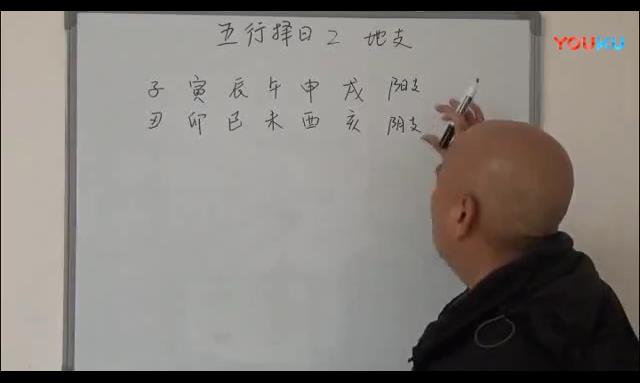 五行择日2 地支
YOUKU
子 寅 辰 午 申 戌 阳支
丑 卯 巳 未 酉 亥 阴支